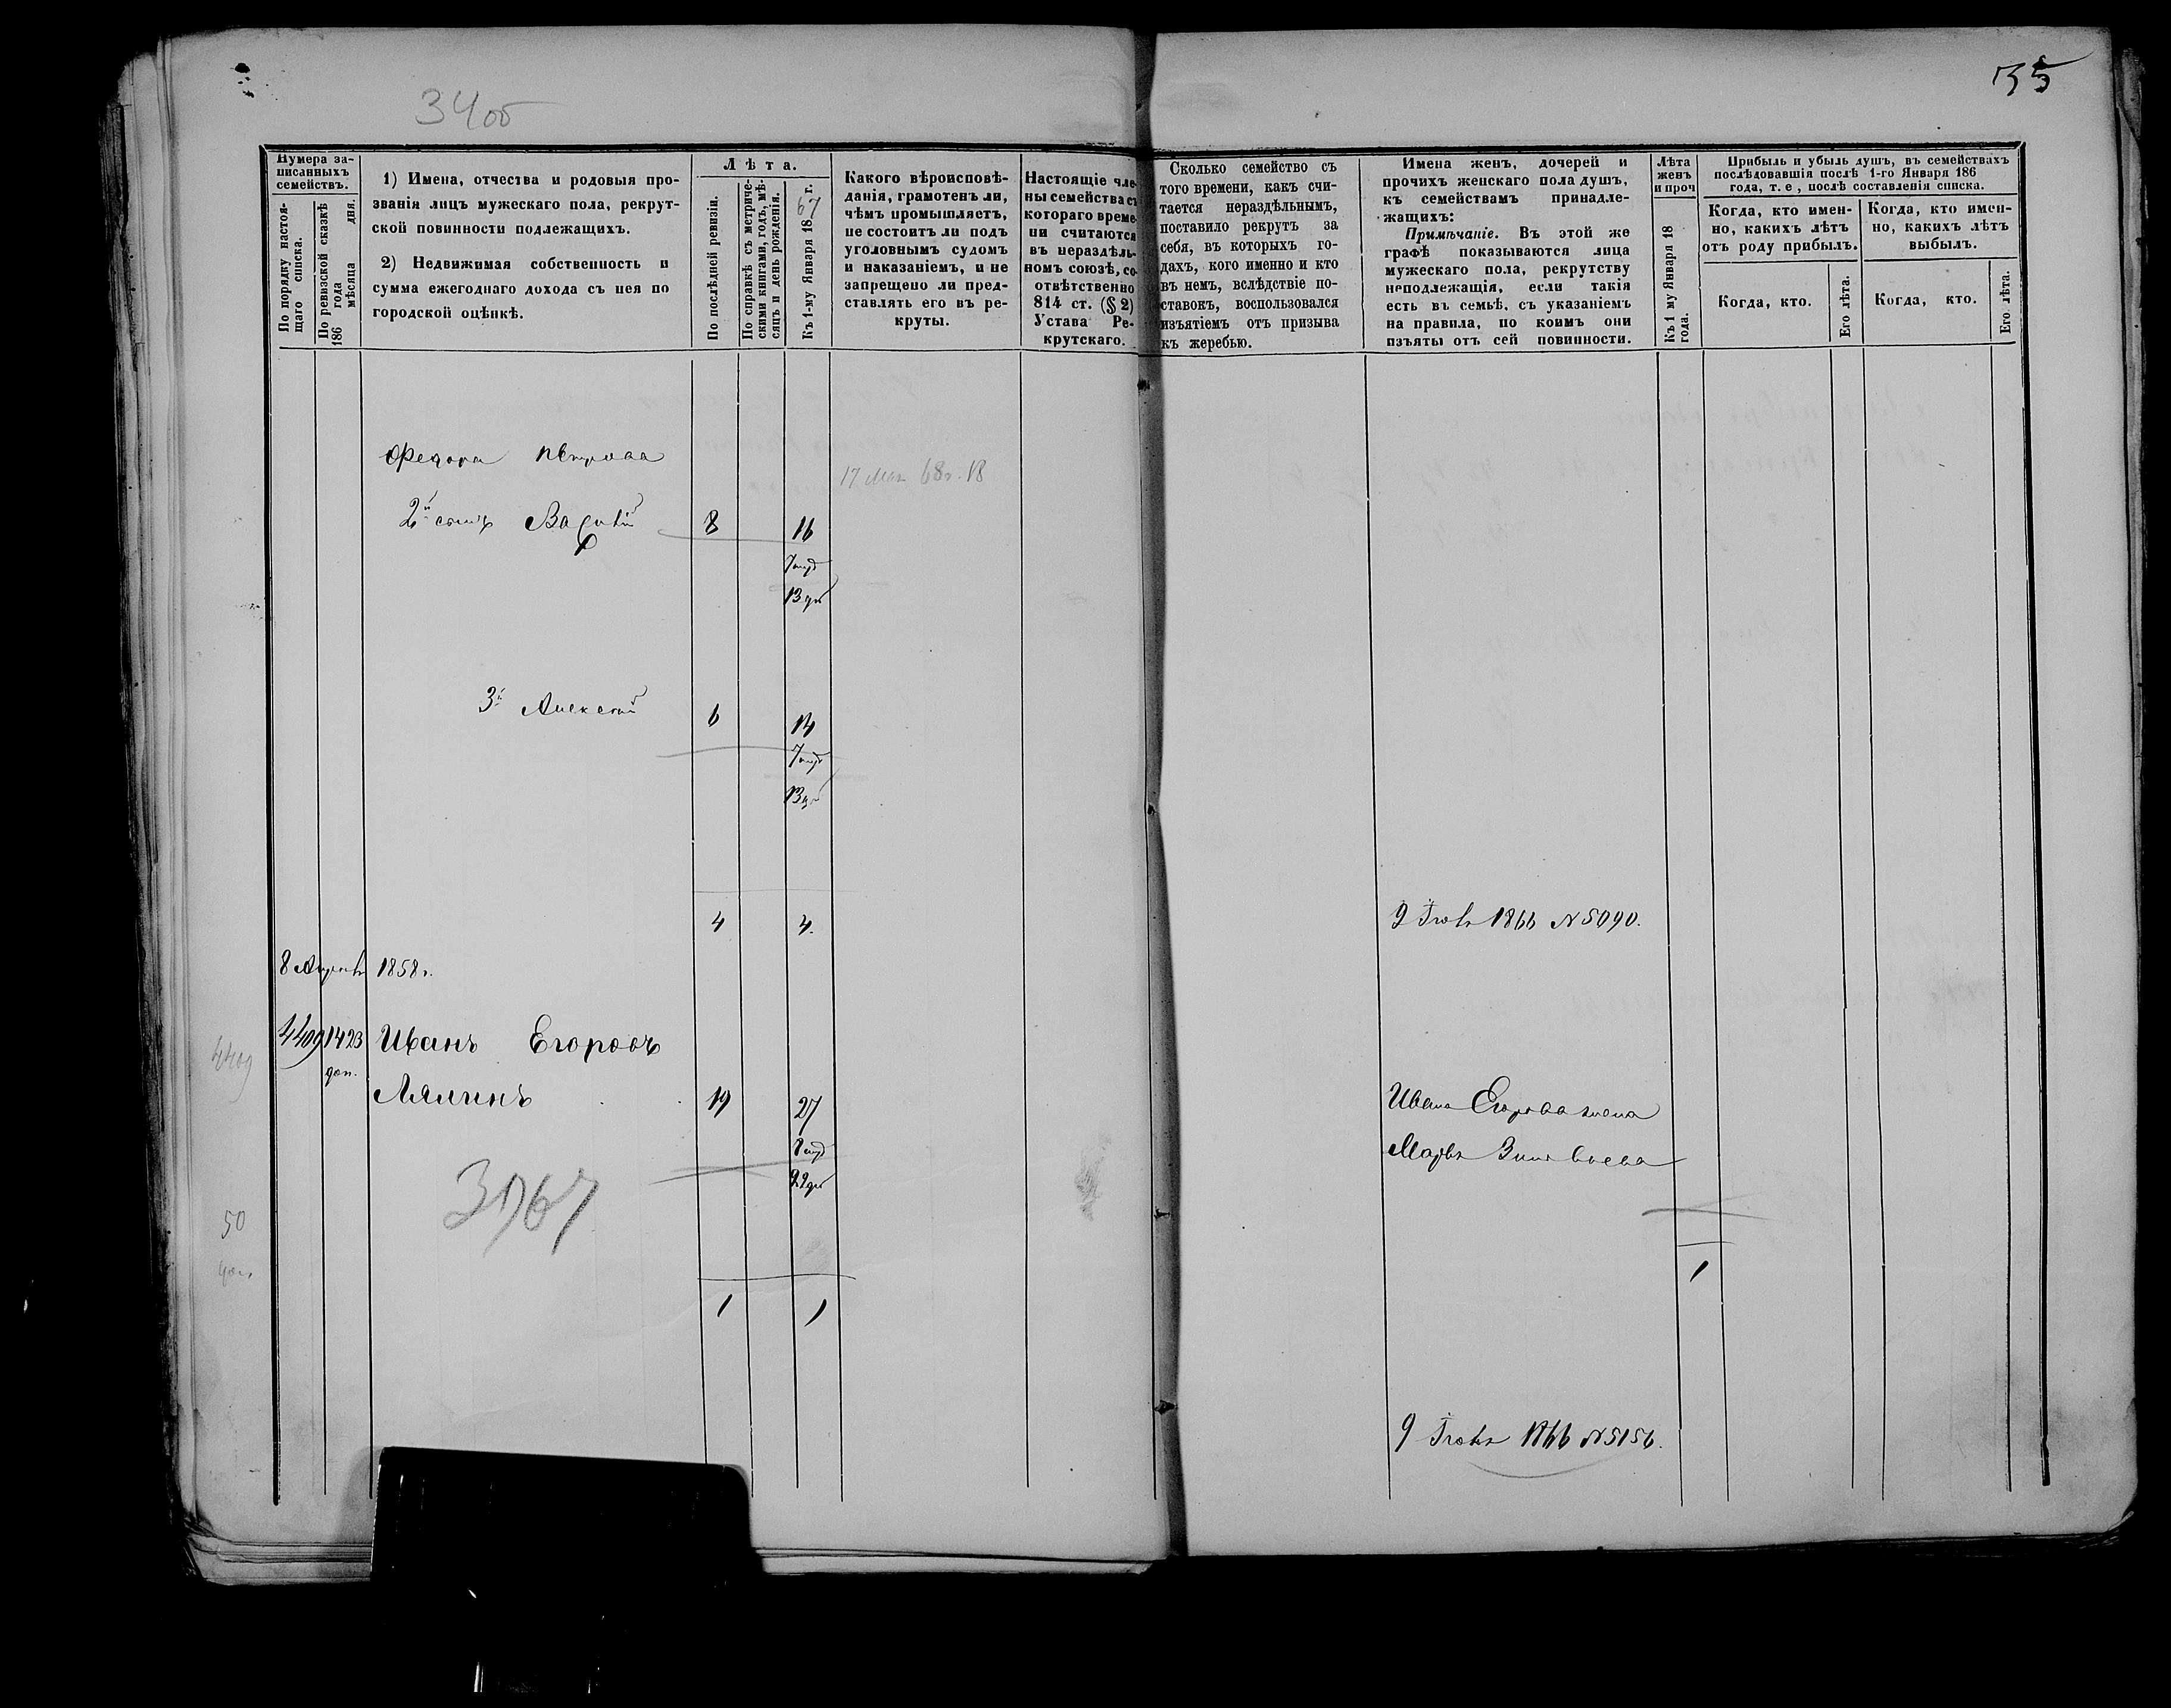 34об
35
Нумера за-
писанныхъ
семействъ.
По порядку настоя-
щаго списка.
По ревизской сказкѣ
186 года
мѣсяца дня.
1) Имена, отчества и родовыя про-
званія лицъ мужескаго пола, рекрут-
ской повинности подлежащихъ.
2) Недвижимая собственность и
сумма ежегоднаго дохода съ нея по
городской оцѣнкѣ.
Лѣта.
По послѣдней ревизіи.
По справкѣ съ метриче-
скими книгами, годъ, мѣ-
сяцъ и день рожденія.
Къ 1-му Января 1867 г.
Какого вѣроисповѣ-
данія, грамотенъ ли,
чѣмъ промышляетъ,
не состоитъ ли подъ
уголовнымъ судомъ
и наказаніемъ, и не
запрещено ли пред-
ставлять его въ ре-
круты.
Настоящіе чле-
ны семейства съ
котораго време-
ни считаются
въ нераздѣль-
номъ союзѣ, со-
отвѣтственно
814 ст. (§ 2)
Устава Ре-
крутскаго.
Сколько семейство съ
того времени, какъ счи-
тается нераздѣльнымъ,
поставило рекрутъ за
себя, въ которыхъ го-
дахъ, кого именно и кто
въ немъ, вслѣдствіе по-
ставокъ, воспользовался
изъятіемъ отъ призыва
къ жеребью.
Имена женъ, дочерей и
прочихъ женскаго пола душъ,
къ семействамъ принадле-
жащихъ:
Примѣчаніе. Въ этой же
графѣ показываются лица
мужескаго пола, рекрутству
неподлежащія, если такія
есть въ семьѣ, съ указаніемъ
на правила, по коимъ они
изъяты отъ сей повинности.
Лѣта
женъ
и проч
Къ 1 му Января 18
года.
Прибыль и убыль душъ, въ семействахъ
послѣдовавшія послѣ 1-го Января 186
года, т. е, послѣ составленія списка.
Когда, кто имен-
но, какихъ лѣтъ
отъ роду прибылъ.
Когда, кто.
Его лѣта.
Когда, кто имен-
но, какихъ лѣтъ
выбылъ.
Когда, кто.
Его лѣта.
Федора Петрова
17 Мая 68г. 18
2й сынъ 8 16
13
3й Алексѣй 6 14
13
4 4.
9 1866 №5090.
8 Апрѣля 1858г.
4409 1423 Иванъ Егоровъ
4409
доп.
Лялинъ 19 27
22
Ивана Егорова жена
Марья Зиновьева
50
доп.
1
1 1
9 1866 №5156.